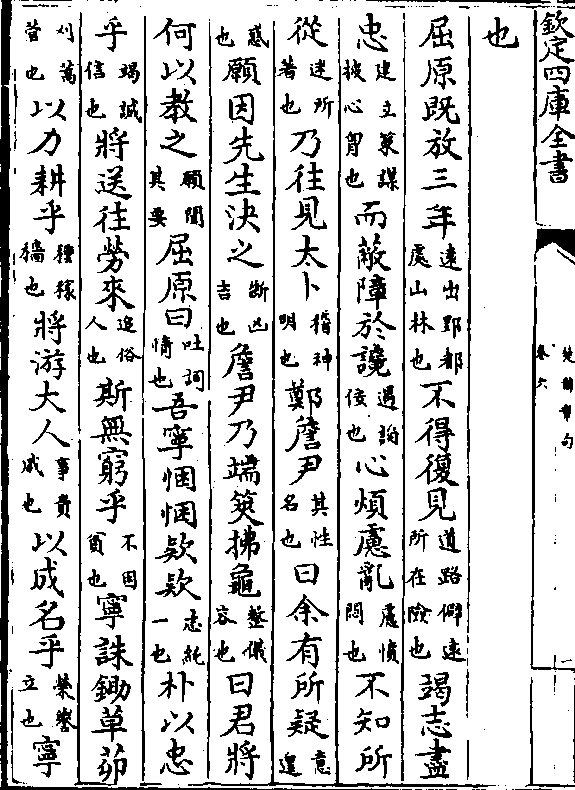 欽定四庫全書
楚辭章句
卷六
一
也
屈原既放三年遠出郢都處山林也不得復見道路僻遠所在險也竭志盡
忠建立策謀披心胷也而蔽障於讒遇諂佞也心煩慮亂慮憤悶也不知所
從迷所著也乃往見太卜稽神明也鄭詹尹其性名也曰余有所疑意遑
惑也願因先生決之斷凶吉也詹尹乃端筴拂龜整儀容也曰君將
何以教之願聞其要屈原曰吐詞情也吾寧悃悃欵欵志純一也朴以忠
乎竭誠信也將送往勞來追俗人也斯無窮乎不困貧也寧誅鋤草茆
刈蒿菅也以力耕乎種稼穡也將游大人事貴戚也以成名乎榮譽立也寧